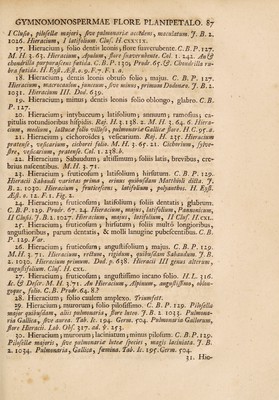 GYMNOMONOSPERMAE FLORE PLANIPETALO. 87
I Clusii, pilosellæ majori, sive pulmonariæ accedens, maculatum. J. B. 2.
1026. Hieracium, I latifolium Clus. H. cxxxix.
17. Hieracium; folio dentis leonis; flore suaverubente. C. B. P. 127.
M. H. 3. 65. Hieracium, Apulum, flore suaverubente. Col. 1. 242. An &
chondrilla purpurascens fœtida. C. B. P. 130. Prodr. 65. & Chondrilla ru-
bra fœtida. H. Eyst. Æst. o. 9. F. 7. F. 1. o.
18. Hieracium; dentis leonis obtuso folio; majus. C. B. P. 127.
Hieracium, macrocaulon, junceum, sive minus, primum Dodonæo. J. B. 2.
1031. Hieracium III. Dod. 639.
19. Hieracium; minus; dentis leonis folio oblongo, glabro. C. B.
P. 127.
20. Hieracium; intybaceum; latifolium; annuum; ramosius; ca-
pitulis rotundioribus hispidis. Raj. H. 3. 138. 2. M. H. 3. 64. 6. Hiera-
cium, medium, lactucæ folio villoso, pulmonariæ Gallicæ flore. H. C. 95. a.
21. Hieracium; cichoroides; vesicarium. Raj. H. 231. Hieracium
pratense, vesicarium, cichorei folio. M. H. 3. 65. 21. Cichorium, sylve-
stre, vesicarium, pratense. Col. 1. 238. b.
22. Hieracium; Sabaudum; altissimum; foliis latis, brevibus, cre-
brius nascentibus. M. H. 3. 71.
23. Hieracium; fruticosum; latifolium; hirsutum. C. B. P. 129.
Hieracii Sabaudi varietas prima, erinus quibusdam Matthioli dicta. J.
B. 2. 1030. Hieracium, fruticescens, latifolium, polyanthos. H. Eyst.
Æst. o. 12. F. 1. Fig. 2.
24. Hieracium; fruticosum; latifolium; foliis dentatis; glabrum.
C. B. P. 129. Prodr. 67. 24. Hieracium, majus, latifolium, Pannonicum,
II Clusii. J. B. 2. 1027. Hieracium, majus, latifolium, II Clus. H. cxl.
25. Hieracium; fruticosum; hirsutum; foliis multò longioribus,
angustioribus, parum dentatis, & molli lanugine pubescentibus. C. B.
P. 129. Var.
26. Hieracium; fruticosum; angustifolium; majus. C. B. P. 129.
M. H. 3. 71. Hieracium, rectum, rigidum, quibusdam Sabaudum. J. B.
2. 1030. Hieracium primum. Dod. p. 638. Hieracii III genus alterum,
angustifolium. Clus. H. cxl.
27. Hieracium; fruticosum; angustissimo incano folio. H. L. 316.
Ic. & Descr. M. H. 3. 71. An Hieracium, Alpinum, angustissimo, oblon-
goque, folio. C. B. Prodr. 64. 8.?
28. Hieracium; folio caulem amplexo. Triumfett.
29. Hieracium; murorum; folio pilosissimo. C. B. P. 129. Pilosella
major quibusdam, aliis pulmonaria, flore luteo. J. B. 2. 1033. Pulmona-
ria Gallica, sive aurea. Tab. Ic. 194. Germ. 504. Pulmonaria Gallorum,
flore Hieracii. Lob. Obs. 317. ad. v. 253.
30. Hieracium; murorum; laciniatum; minus pilosum. C. B. P. 129.
Pilosellæ majoris, sive pulmonariæ luteæ species, magis laciniata. J. B.
2. 1034. Pulmonaria, Gallica, fœmina. Tab. Ic. 195. Germ. 504.
31. Hie-